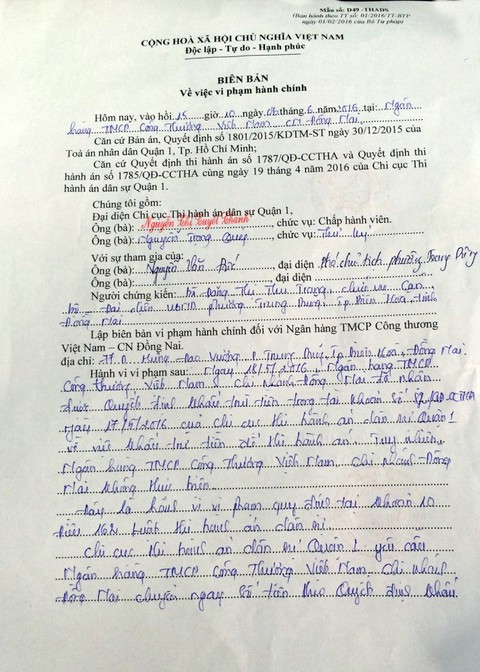 Mẫu số: D49 - THADS
(Ban hành theo TT số: 01/2016/TT-BTP
ngày 01/02/2016 của Bộ Tư pháp)
CỘNG HOÀ XÃ HỘI CHỦ NGHĨA VIỆT NAM
Độc lập - Tự do - Hạnh phúc
BIÊN BẢN
Về việc vi phạm hành chính
Hôm nay, vào hồi 15 giờ 10 ngày 06 tháng 6 năm 2016 tại: Ngân
hàng TMCP Công Thương Việt Nam CN Đồng Nai
Căn cứ Bản án, Quyết định số 1801/2015/KDTM-ST ngày 30/12/2015 của
Toà án nhân dân Quận 1, Tp. Hồ Chí Minh;
Căn cứ Quyết định thi hành án số 1787/QĐ-CCTHA và Quyết định thi
hành án số 1785/QĐ-CCTHA cùng ngày 19 tháng 4 năm 2016 của Chi cục Thi
hành án dân sự Quận 1.
Chúng tôi gồm:
Đại diện Chi cục Thi hành án dân sự Quận 1,
Ông (bà): Nguyễn Thị Tuyết Thanh, chức vụ: Chấp hành viên.
Ông (bà): Nguyễn Trọng Quý, chức vụ: Thư ký
Với sự tham gia của:
Ông (bà): Nguyễn Văn, đại diện Phó chủ tịch phường Trung Dũng
Ông (bà):, đại diện
Người chứng kiến: bà Đặng Thị Thu Trang, chức vụ: Cán
bộ Đại diện UBND phường Trung Dũng, Tp Biên Hoà, tỉnh
Đồng Nai
Lập biên bản vi phạm hành chính đối với Ngân hàng TMCP Công thương
Việt Nam – CN Đồng Nai.
địa chỉ: 77.D Hưng Đạo Vương P. Trung Dũng, Tp. Biên Hoà, Đồng Nai.
Hành vi vi phạm sau: Ngày 18/5/2016, Ngân hàng TMCP
Công Thương Việt Nam chi nhánh Đồng Nai đã nhận
được Quyết định khấu trừ tiền trong tài khoản số
ngày 17/5/2016 của chi cục thi hành án dân sự Quận 1
về việc khấu trừ tiền để thi hành án. Tuy nhiên,
Ngân hàng TMCP Công Thương Việt Nam chi nhánh Đồng
Nai không thực hiện.
Đây là hành vi vi phạm quy định tại khoản 10
điều 162 Luật thi hành án dân sự.
Chi cục thi hành án dân sự Quận 1 yêu cầu
Ngân hàng TMCP Công Thương Việt Nam chi nhánh
Đồng Nai chuyển ngay số tiền theo Quyết định khấu